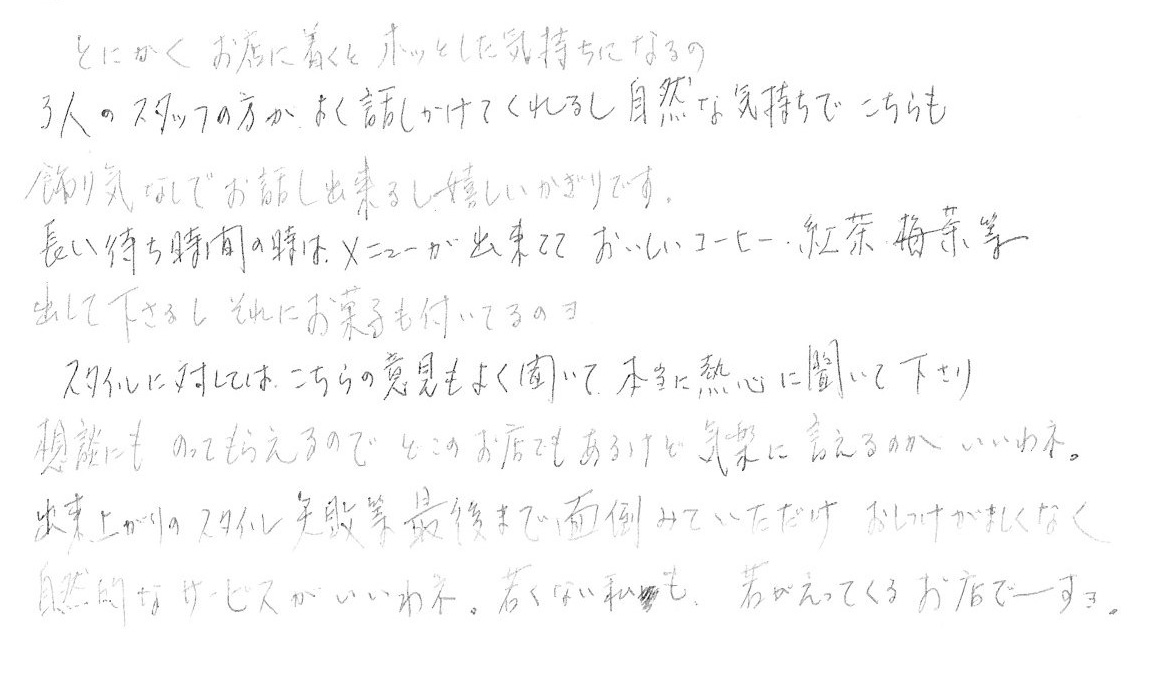 とにかく お店に着くと ホッとした気持ちになるの
3人の スタッフの方が よく話しかけてくれるし 自然な気持ちで こちらも
飾り気なしで お話し出来るし、嬉しいかぎりです。
長い待ち時間の時は、メニューが出来てて おいしいコーヒー・紅茶・梅茶等
出して下さるし それにお菓子も付いてるのヨ
スタイルに対しては、こちらの意見もよく聞いて、本当に熱心に聞いて下さり
想談にも のってもらえるので どこのお店でもあるけど 気楽に言えるのが いいわネ。
出来上がりの スタイル 失敗等 最後まで面倒みていただけ おしつけがましくなく
自然的な サービスが いいわネ。若くない私も、若がえってくる お店でーすヨ。